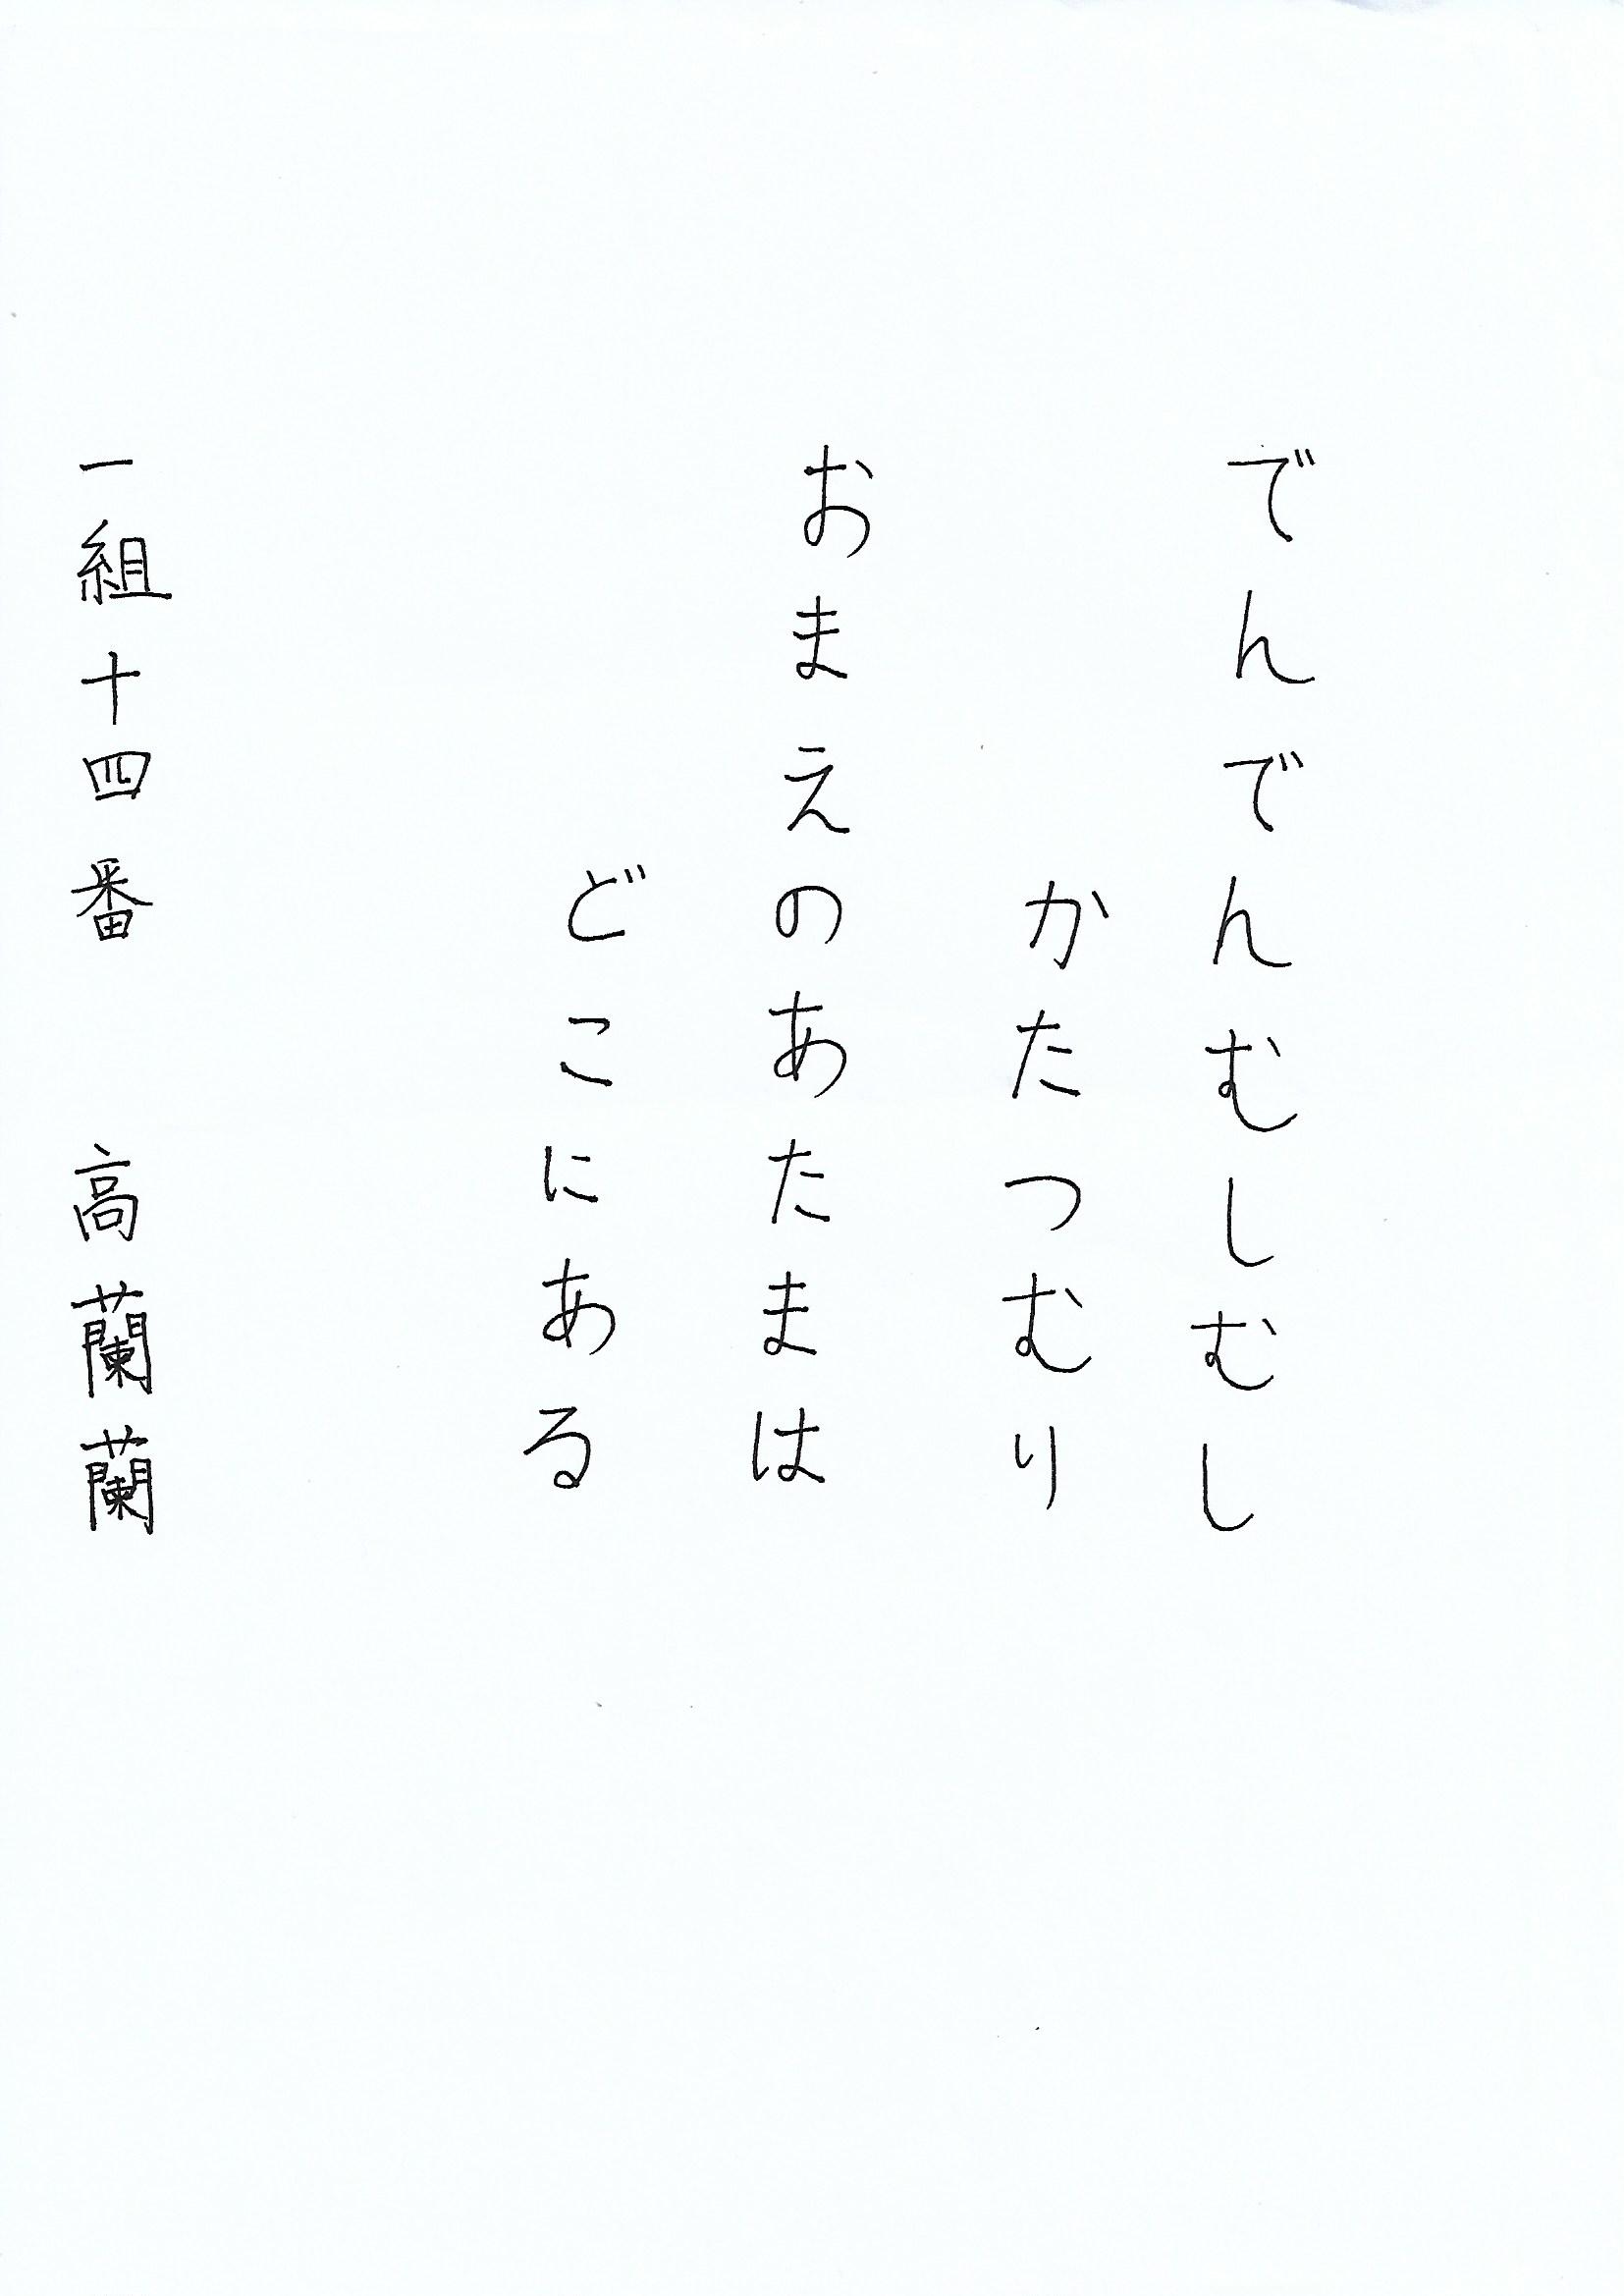 でんでんむしむし
かたつむり
おまえのあたまは
どこにある
一組十四番　高蘭蘭